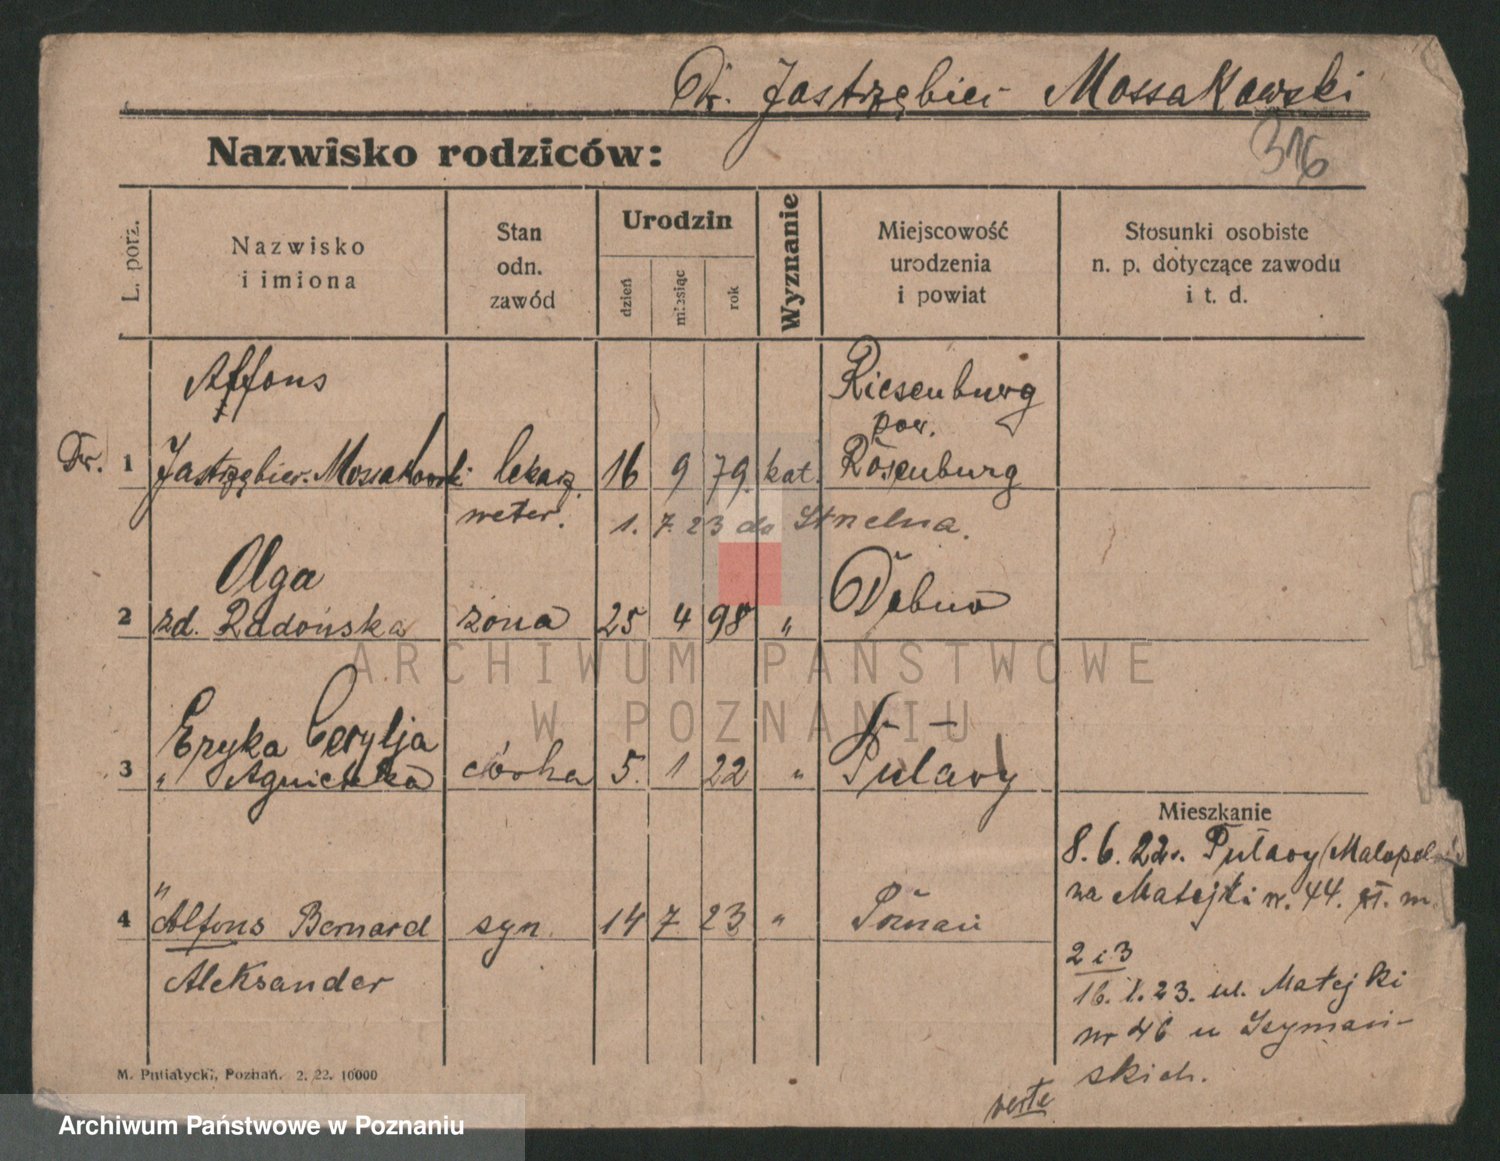 Dr. Jastrzębiec Mossakowski
316
Nazwisko rodziców:
L. porz.
Nazwisko
i imiona
Stan
odn.
zawód
Urodzin
dzień
miesiąc
rok
Wyznanie
Miejscowość
urodzenia
i powiat
Stosunki osobiste
n. p. dotyczące zawodu
i t. d.
Alfons
Riesenburg
pow.
Dr. 1 Jastrzębiec-Mossakowski lekarz 16 9 79. kat. Rosenburg
weter. 1. 7. 23 do Strzelna.
Olga
2 zd. Radońska żona 25 4 98 " Dębno
Eryka Cecylja
3 " Agnieszka córka 5. 1 22 " Puławy
Mieszkanie
8. 6. 22r. Puławy (Małopol
na Matejki nr. 44. m.
4 " Alfons Bernard syn. 14 7 23 " Poznań
Aleksander
2 i 3
16. 1. 23. ul. Matejki
nr 46 u Szymań-
skich.
verte
M. Putiatycki, Poznań. 2. 22. 10000
ARCHIWUM PAŃSTWOWE
W POZNANIU
Archiwum Państwowe w Poznaniu